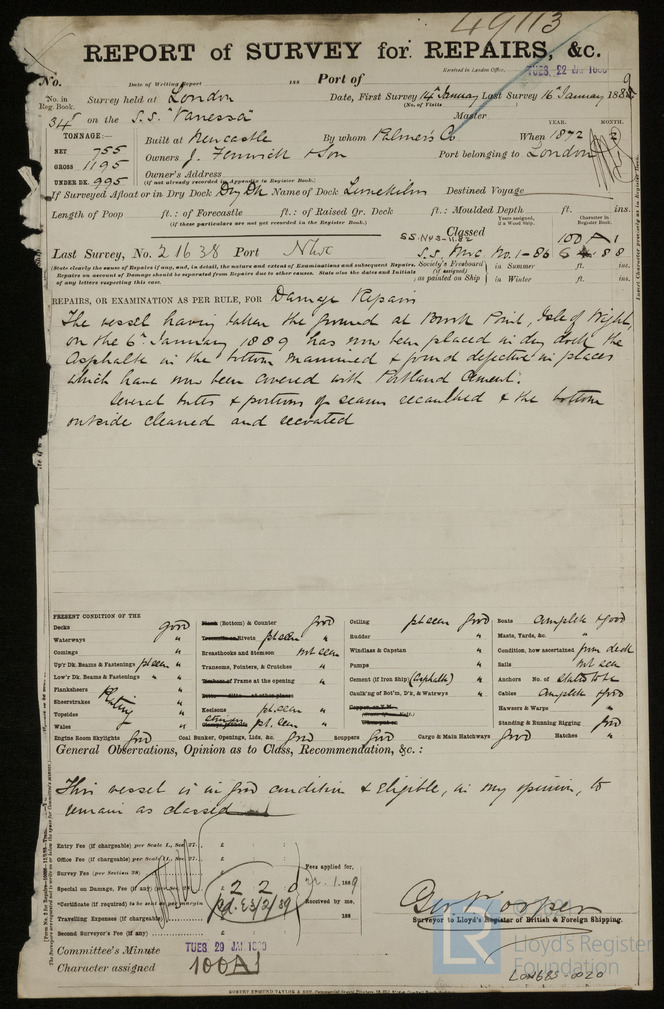 49113
REPORT of SURVEY for REPAIRS, &c.
Received in London Office, TUES. 22 JAN 1889
No. Date of Writing Report 188 Port of
No. in Reg. Book. Survey held at London Date, First Survey 14th January Last Survey 16th January 1889
(No. of Visits
34 on the S.S. "Vanessa" Master
TONNAGE:— YEAR. MONTH.
NET 755 Built at Newcastle By whom Palmer's Co When 1872 2
GROSS 1195 Owners J. Fenwick & Son Port belonging to London
UNDER DK. 995 Owner's Address
(if not already recorded in Appendix to Register Book.)
If Surveyed Afloat or in Dry Dock Dry Dk Name of Dock Limekiln Destined Voyage
Length of Poop ft.: of Forecastle ft.: of Raised Qr. Deck ft.: Moulded Depth ft. ins.
(if these particulars are not yet recorded in the Register Book.)
Years assigned, if a Wood Ship. Character in Register Book.
Classed 100 A1
S.S. Nº3-11.82
Last Survey, No. 21638 Port Nwc S.S. Nwc. No. 1-86 88
(State clearly the cause of Repairs if any, and, in detail, the nature and extent of Examinations and subsequent Repairs. Repairs on account of Damage should be separated from Repairs due to other causes. State also the dates and Initials of any letters respecting this case.
Society's Freeboard (if assigned) as painted on Ship in Summer ft. ins.
in Winter ft. ins.
REPAIRS, OR EXAMINATION AS PER RULE, FOR Damage Repairs
The vessel having taken the ground at Brook Point, Isle of Wight,
on the 6th January 1889 has now been placed in dry dock the
Asphalte in the bottom examined & found defective in places
which have now been covered with Portland Cement.
Several butts & portions of seams recaulked & the bottom
outside cleaned and recoated
PRESENT CONDITION OF THE
Decks good
Waterways "
Comings "
Up'r Dk. Beams & Fastenings pt seen "
Low'r Dk. Beams & Fastenings "
Planksheers "
Sheerstrakes Plating "
Topsides "
Wales "
Engine Room Skylights good
(Bottom) & Counter good
Rivets pt seen "
Breasthooks and Stemson not seen
Transoms, Pointers, & Crutches "
Frame at the opening "
Keelsons pt. seen "
Stringers pt. seen "
Coal Bunker, Openings, Lids, &c. good
Ceiling pt seen good
Rudder "
Windlass & Capstan "
Pumps "
Cement (if Iron Ship) (Asphalte) "
Caulk'ng of Bot'm, D'k, & Waterw's "
Scuppers good Cargo & Main Hatchways good
Boats Complete & good
Masts, Yards, &c. "
Condition, how ascertained from deck
Sails not seen
Anchors No. of stated to be
Cables Complete & good
Hawsers & Warps "
Standing & Running Rigging good
Hatches "
General Observations, Opinion as to Class, Recommendation, &c.:
This vessel is in good condition & Eligible, in my opinion, to
remain as classed
Entry Fee (if chargeable) per Scale I., Sec. 27 £ : :
Office Fee (if chargeable) per Scale II., Sec. 27 £ : :
Survey Fee (per Section 28) £ : :
Special on Damage, Fee (if any) £ 2 2 0
*Certificate (if required) to be sent as per margin pd. £ 3/2/89
Travelling Expenses (if chargeable) £
Second Surveyor's Fee (if any) £ : :
Fees applied for, 1. 1889
Received by me, 188
Geo Cooper
Surveyor to Lloyd's Register of British & Foreign Shipping.
Committee's Minute TUES. 29 JAN 1889
Character assigned 100A1
LR Lloyd's Register Foundation
LON685-0020